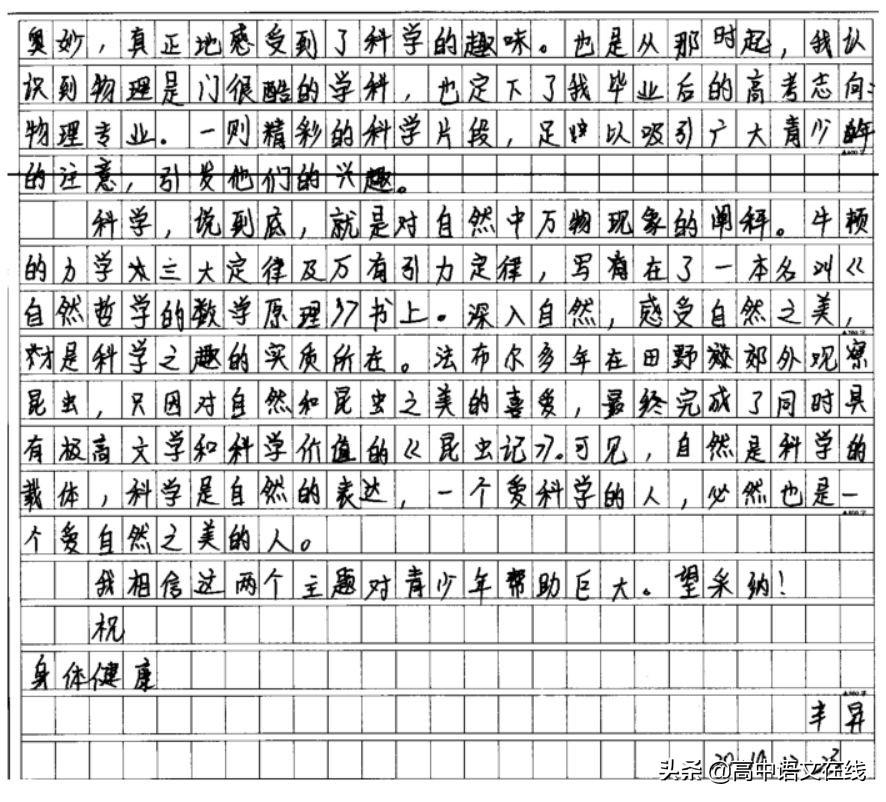 奥妙，真正地感受到了科学的趣味。也是从那时起，我认
识到物理是门很酷的学科，也定下了我毕业后的高考志向：
物理专业。一则精彩的科学片段，足以吸引广大青少年
的注意，引发他们的兴趣。
科学，说到底，就是对自然中万物现象的阐释。牛顿
的力学三大定律及万有引力定律，写在了一本名叫《
自然哲学的数学原理》书上。深入自然，感受自然之美，
才是科学之趣的实质所在。法布尔多年在田野郊外观察
昆虫，只因对自然和昆虫之美的喜爱，最终完成了同时具
有极高文学和科学价值的《昆虫记》。可见，自然是科学的
载体，科学是自然的表达，一个爱科学的人，必然也是一
个爱自然之美的人。
我相信这两个主题对青少年帮助巨大。望采纳！
祝
身体健康
丰昇
头条@高中语文在线